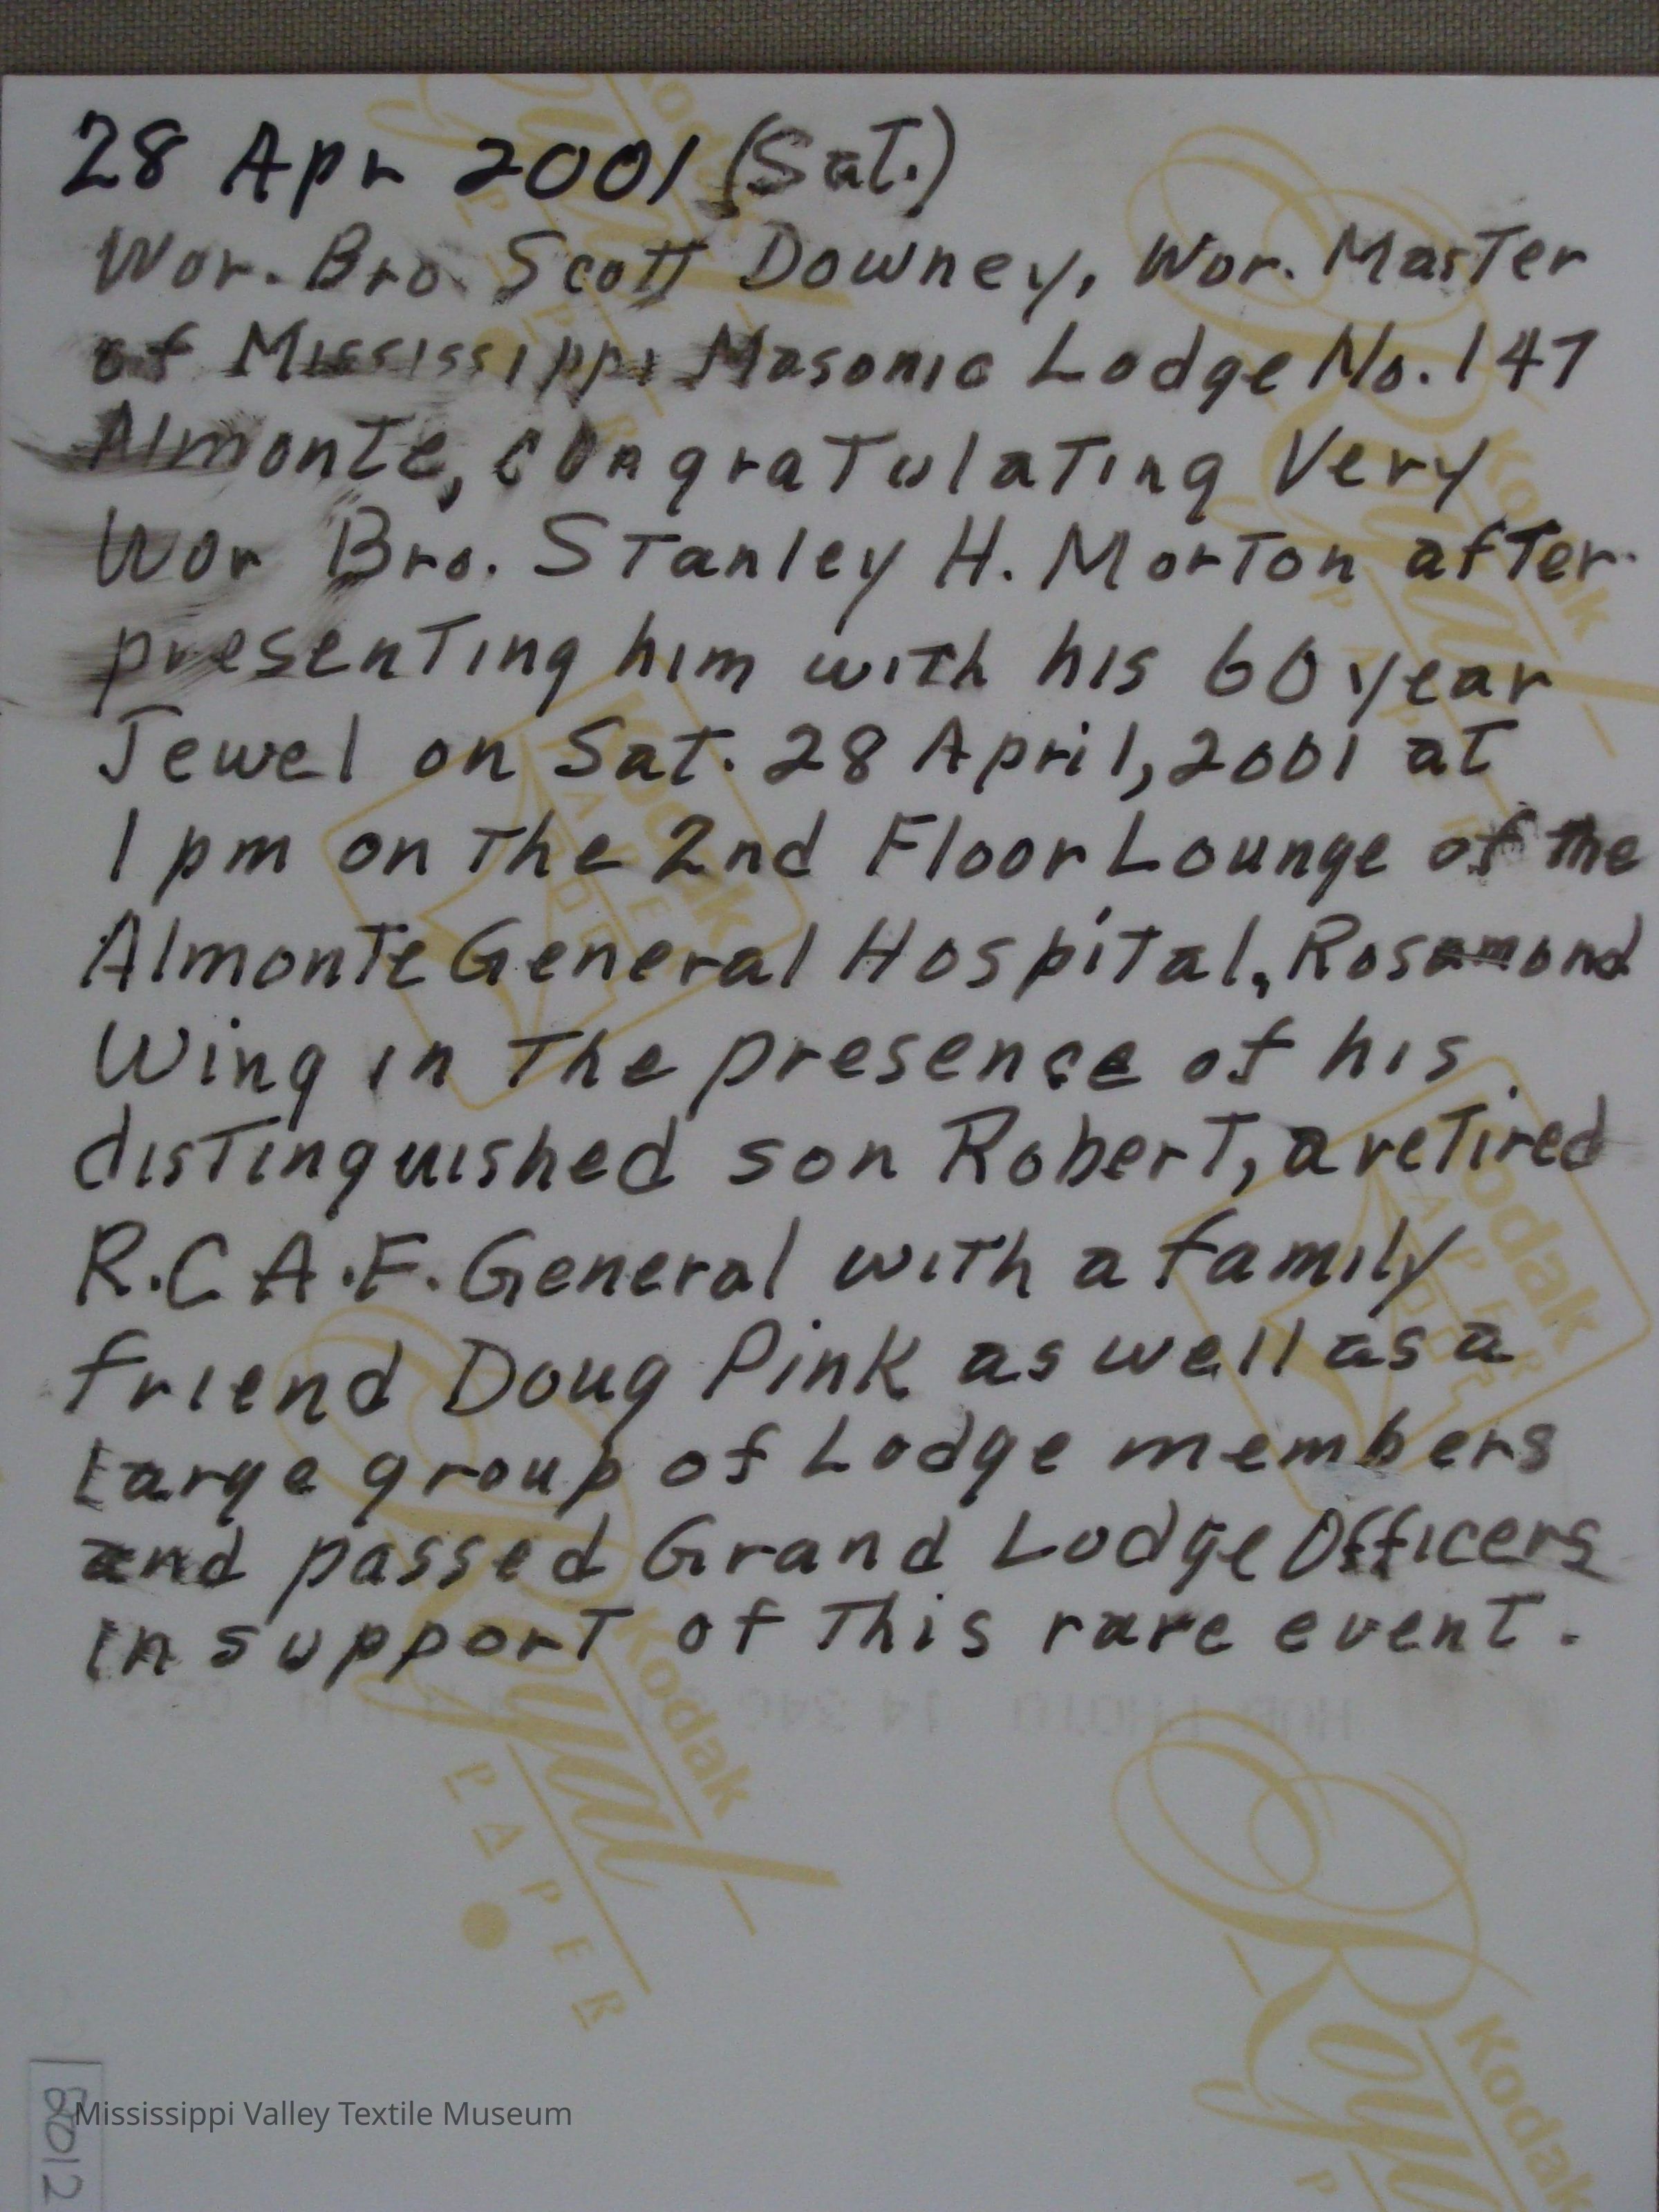 28 Apr 2001 (Sat.)
Wor. Bro. Scott Downey, Wor. Master
of Mississippi Masonic Lodge No. 147
Almonte, congratulating Very
Wor Bro. Stanley H. Morton after
presenting him with his 60 year
Jewel on Sat. 28 April, 2001 at
1 pm on the 2nd Floor Lounge of the
Almonte General Hospital, Rosamond
Wing in the presence of his
distinguished son Robert, a retired
R.C.A.F. General with a family
friend Doug Pink as well as a
Large group of Lodge members
and passed Grand Lodge Officers
in support of this rare event.
Kodak
Royal
PAPER
Kodak
Royal
Mississippi Valley Textile Museum